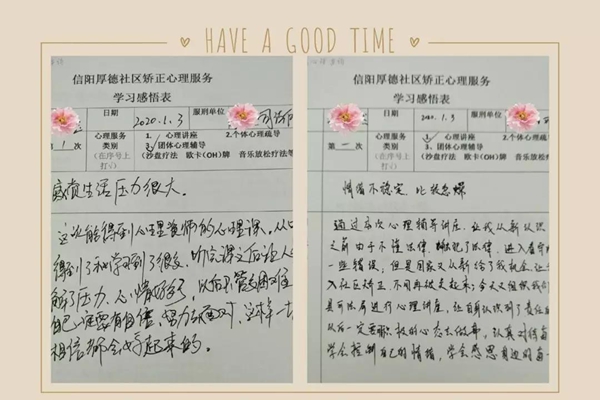 HAVE A GOOD TIME
信阳厚德社区矫正心理服务
学习感悟表
日期 2020.1.3 服刑单位
第1次
心理服务类别
(在序号上打√)
1. 心理讲座 2.个体心理疏导
3. 团体心理辅导
(沙盘疗法 欧卡(OH)牌 音乐放松疗法等
感觉生活压力很大。
这次能得到心理老师的心理课。从中
得到了和学习到了很多，听完课之后让人
解了压力，心情好多了，以后不管困难
自己一定要有自信，努力去面对，这样一切
相信都会好起来的。
信阳厚德社区矫正心理服务
学习感悟表
日期 服刑单位
第一次
心理服务类别
(在序号上打√)
1. 心理讲座 2.个体心理疏导
3. 团体心理辅导
(沙盘疗法 欧卡(OH)牌 音乐放松疗法
情绪不稳定，比较急躁
通过本次心理辅导讲座，让我从新认识
之前由于不懂法律，触犯了法律，进入看守
一些错误，但是国家又从新给了我机会，让
入社区矫正，不用再被关起来，今天又组织我们
县司法局进行心理讲座，让自新认识到了责任
以后一定要积极的心态去做事，认真对待每
学会控制自己的情绪，学会感恩身边的每一